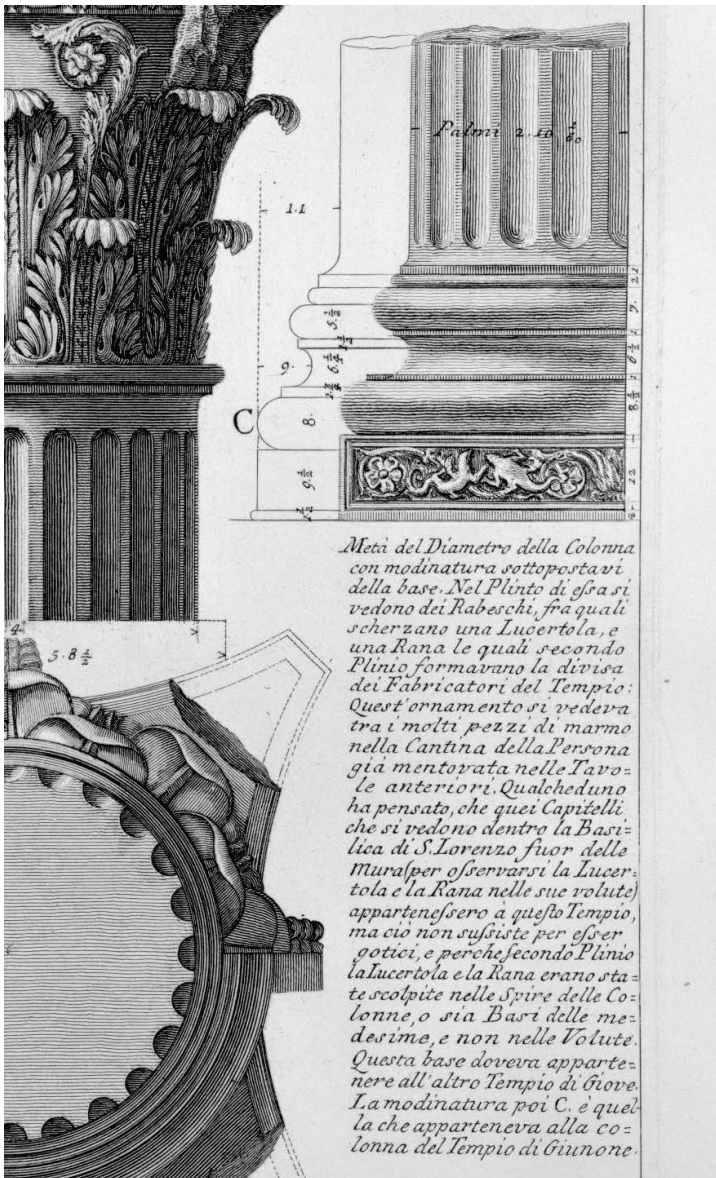 Palmi 2. 10 1/60
1.1
2 1
7.
5.1/2
1
1 1/2
6 1/2
9.
6.1/4
1
8 1/2
C
8.
12
9.1/2
1 1/2
4
5.8 1/2
Metà del Diametro della Colonna
con modinatura sottopostavi
della base. Nel Plinto di eſsa si
vedono dei Rabeschi, fra quali
scherzano una Lucertola, e
una Rana le quali secondo
Plinio formavano la divisa
dei Fabricatori del Tempio:
Quest'ornamento si vedeva
tra i molti pezzi di marmo
nella Cantina della Persona
già mentovata nelle Tavo=
le anteriori. Qualcheduno
ha pensato, che quei Capitelli
che si vedono dentro la Basi=
lica di S. Lorenzo fuor delle
Mura (per oſservarsi la Lucer=
tola e la Rana nelle sue volute)
apparteneſsero à queſto Tempio,
ma ciò non suſsiste per eſser
gotici, e perche ſecondo Plinio
la Lucertola e la Rana erano sta=
te scolpite nelle Spire delle Co=
lonne, o sia Basi delle me=
desime, e non nelle Volute.
Questa base doveva apparte=
nere all'altro Tempio di Giove.
La modinatura poi C. è quel-
la che apparteneva alla co=
lonna del Tempio di Giunone.